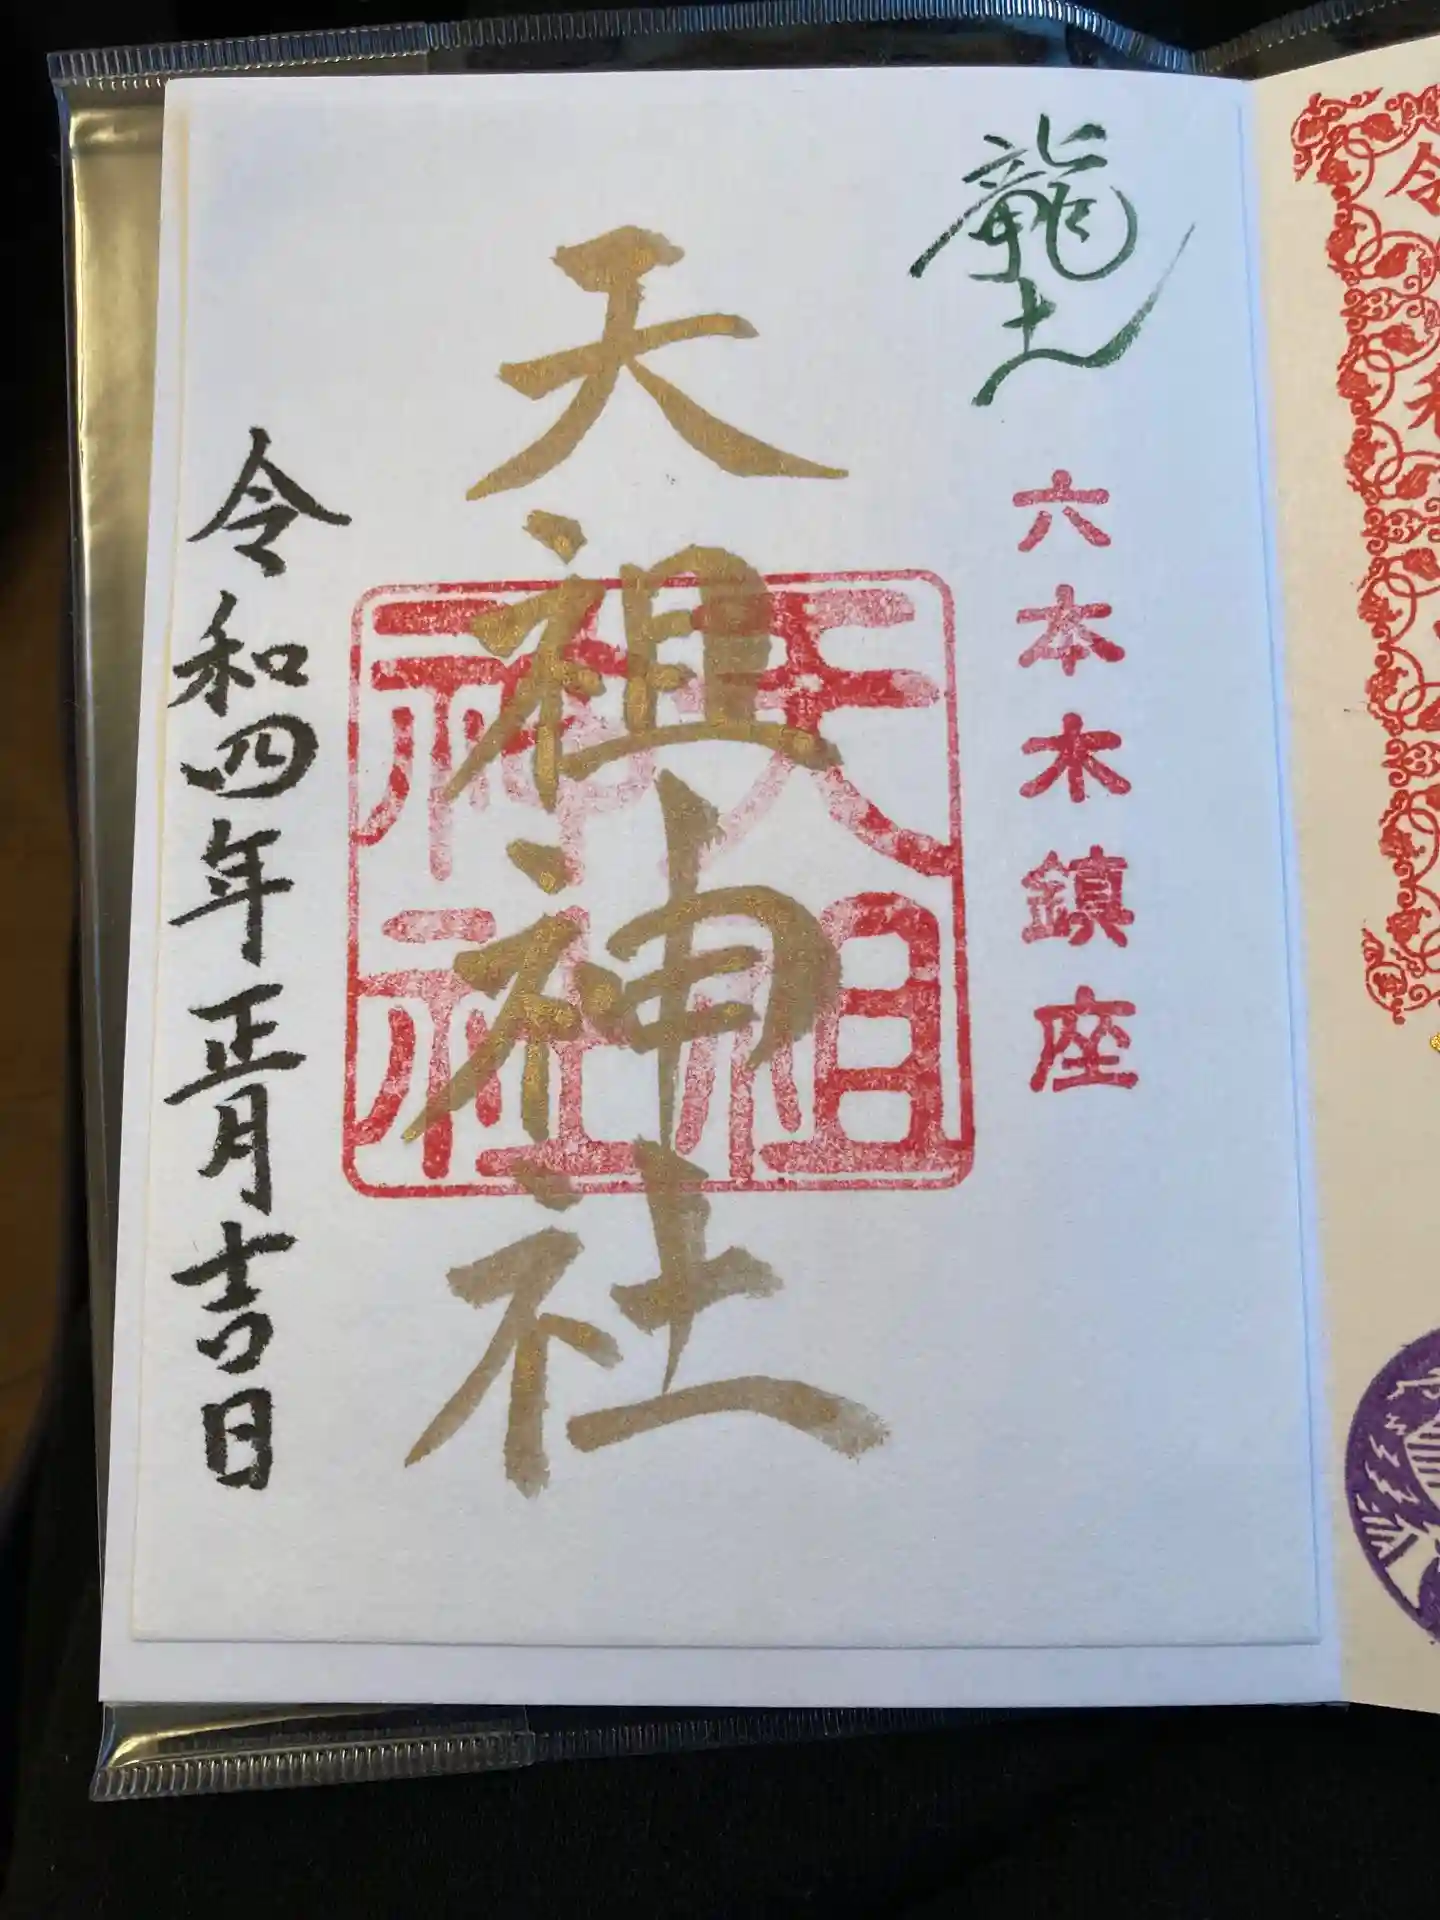 龍土
六本木鎮座
天祖神社
天祖
神社
令和四年正月吉日
令